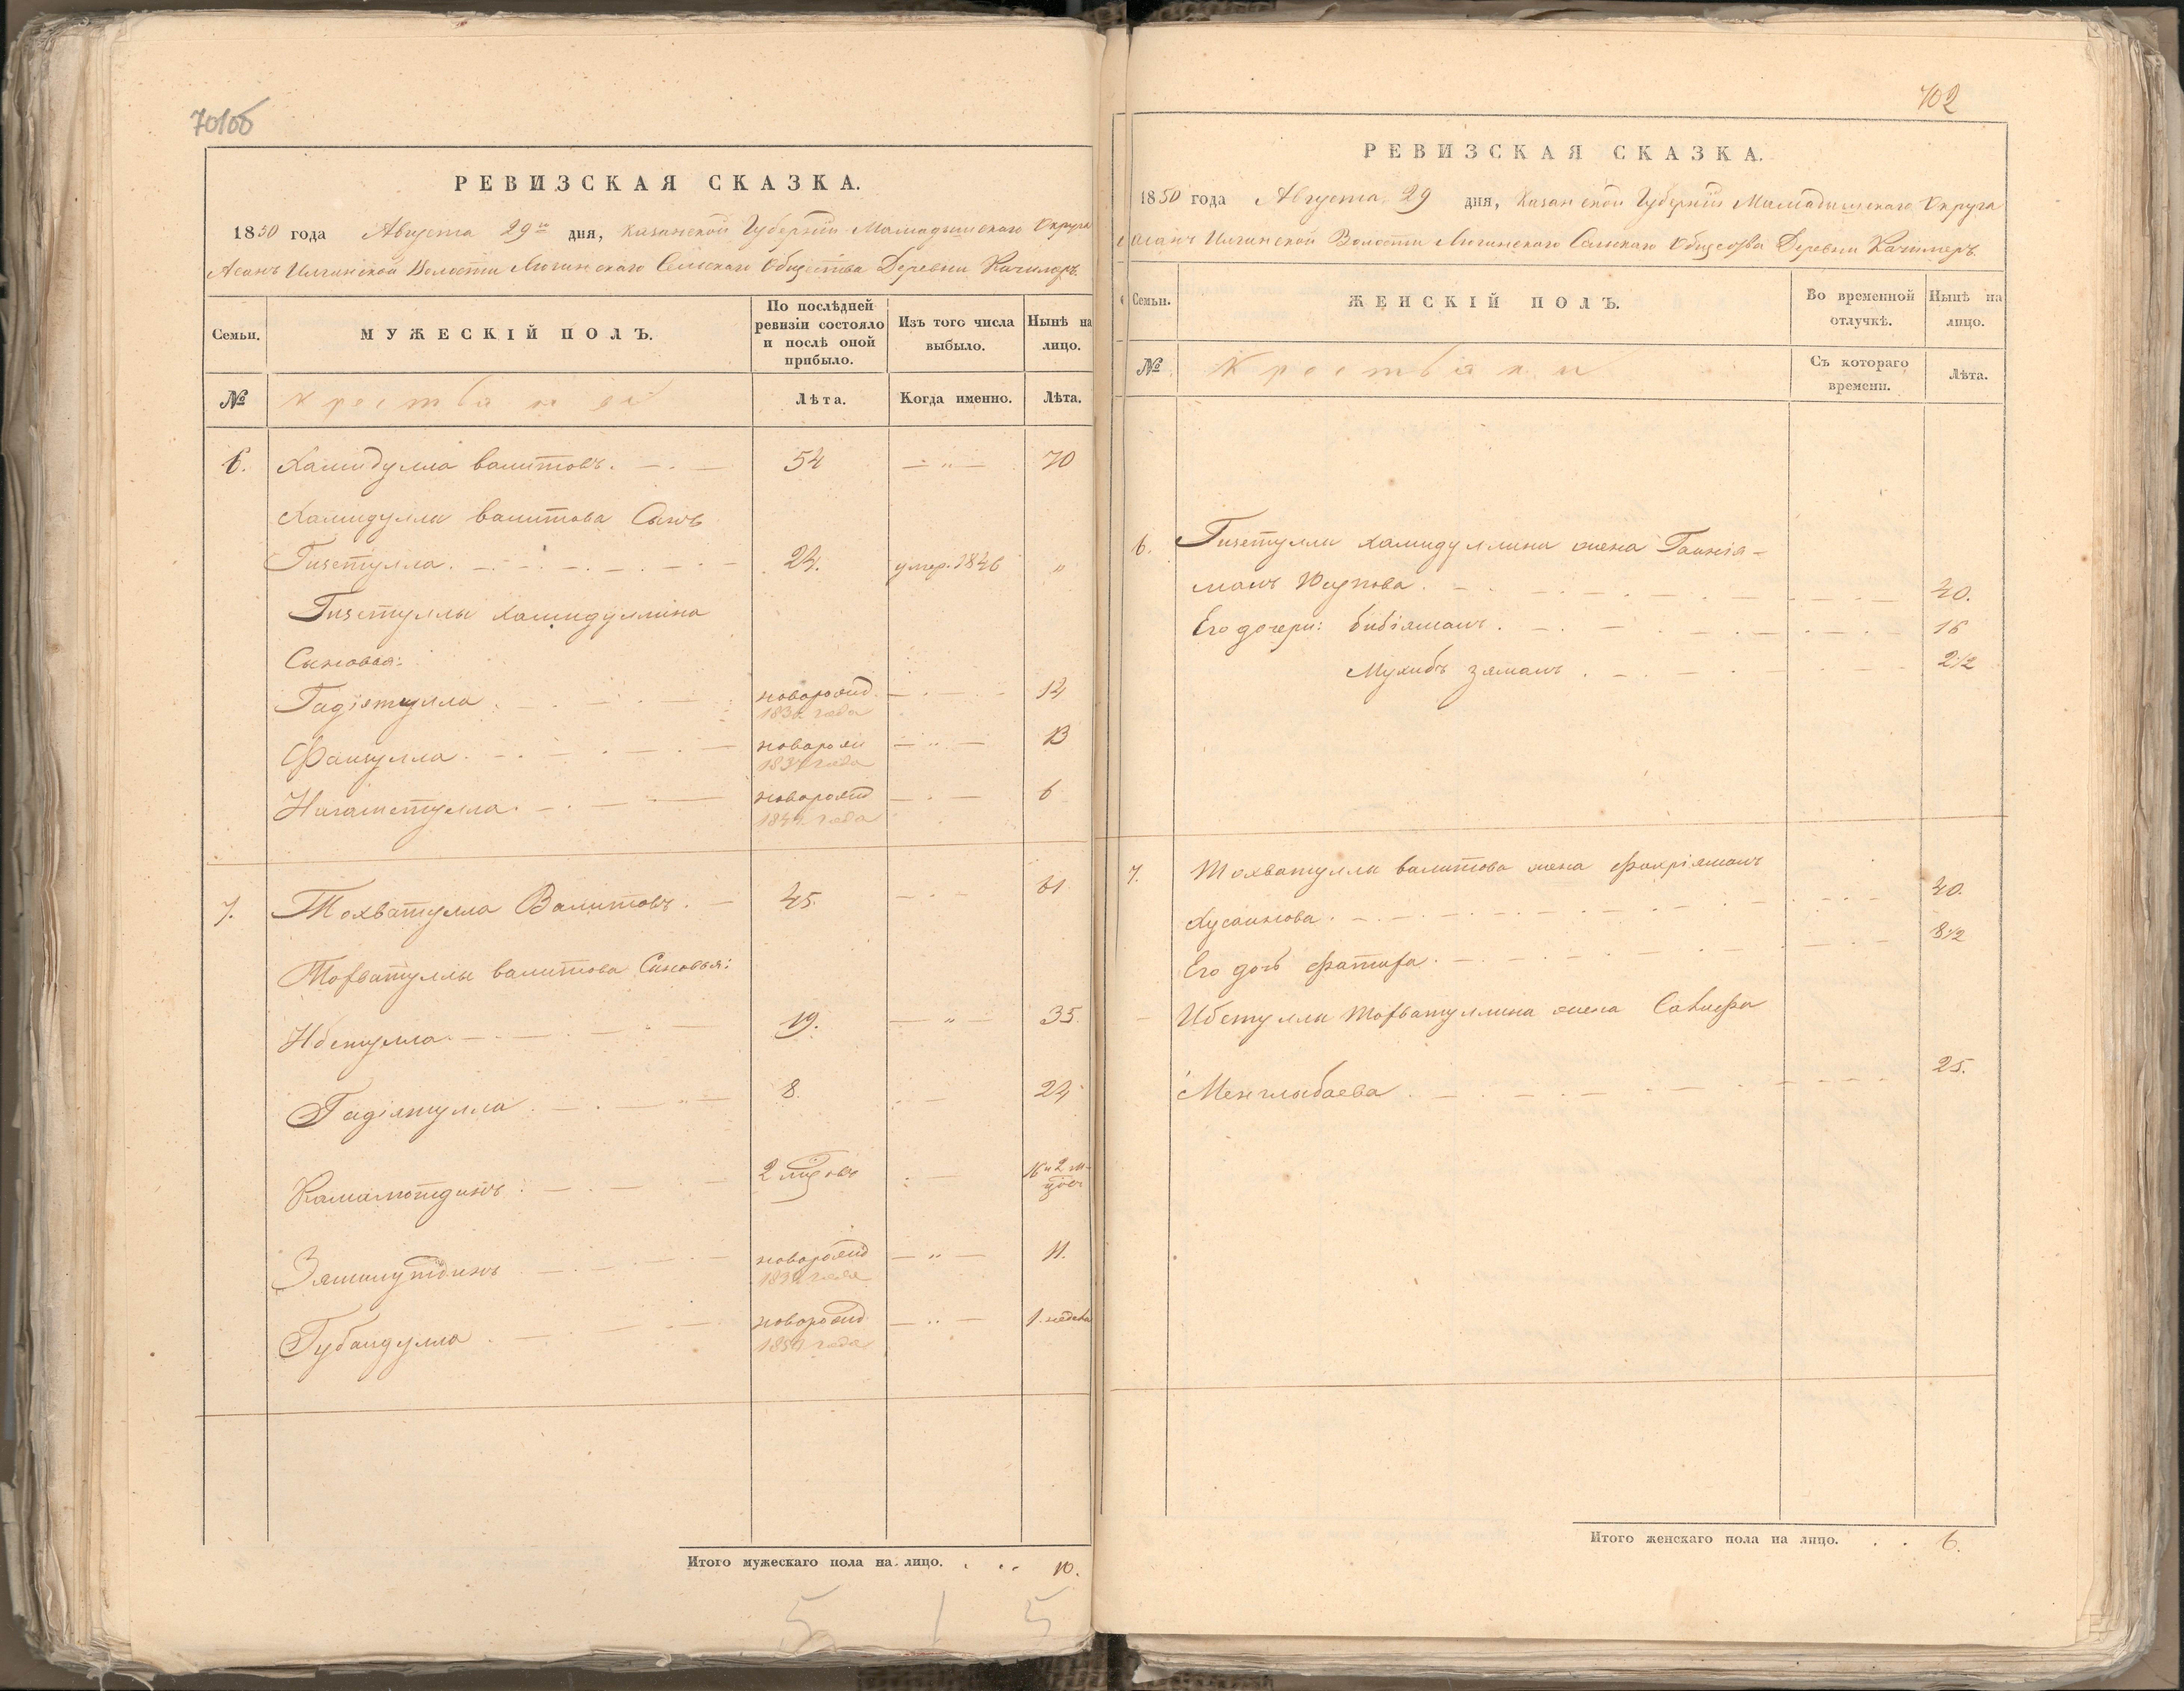 701об
РЕВИЗСКАЯ СКАЗКА.
1850 года Августа 29го дня, Казанской Губерніи Мамадышскаго Округа
Асанъ Илгинской Волости Люгинскаго Сельскаго Общества Деревни Качимеръ.
Семьи.
МУЖЕСКІЙ ПОЛЪ.
По послѣдней ревизіи состояло и послѣ оной прибыло.
Изъ того числа выбыло.
Нынѣ на лицо.
№
Крестьяне
Лѣта.
Когда именно.
Лѣта.
6. Хамидулла Валитовъ. 54 — „ — 70
Хамидуллы Валитова Сынъ
Гизетулла. 24. умер. 1846 „
Гизетуллы Хамидуллина
Сыновья:
Гадіятулла новорожд. 14
1836 года
Фаизулла. новорож 13
1837 года
Нигаметулла. новорожд 6
1844 года
7. Тохватулла Валитовъ. 45. 61
Тофватуллы Валитова Сыновья:
Ибетулла 19. — „ — 35.
Гадіятулла 8. 24
Камалютдинъ 2 мѣсяцовъ 16 и 2 м-цов
Зямалутдинъ новорожд — „ — 11.
1839 года
Губаидулла новорожд — „ — 1. недели
1850 года
Итого мужескаго пола на лицо. . . . 10.
5 1 5
702
РЕВИЗСКАЯ СКАЗКА.
1850 года Августа 29 дня, Казанской Губерніи Мамадышскаго Округа
Асанъ Илгинской Волости Люгинскаго Сельскаго Общества Деревни Качимеръ.
Семьи.
ЖЕНСКІЙ ПОЛЪ.
Во временной отлучкѣ.
Нынѣ на лицо.
№
Крестьянки
Съ котораго времени.
Лѣта.
6. Гизетуллы Хамидуллина жена Гайнія-
малъ Юсупова. 40.
Его дочери: Бибіямалъ. 16
Мухибъ зямалъ. 2 1/2
7. Тохватуллы Валитова жена Фахріямалъ
Хусаинова. 40.
Его дочь Фатифа. 8 1/2
Ибетуллы Тофватуллина жена Сагифа
Менглыбаева 25.
Итого женскаго пола на лицо. . . 6.